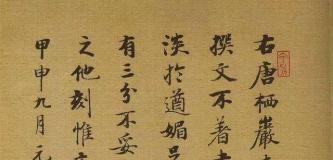 右唐栖巖
撰文不著
淡於遒媚
有三分不妥
之他刻惟
甲申九月